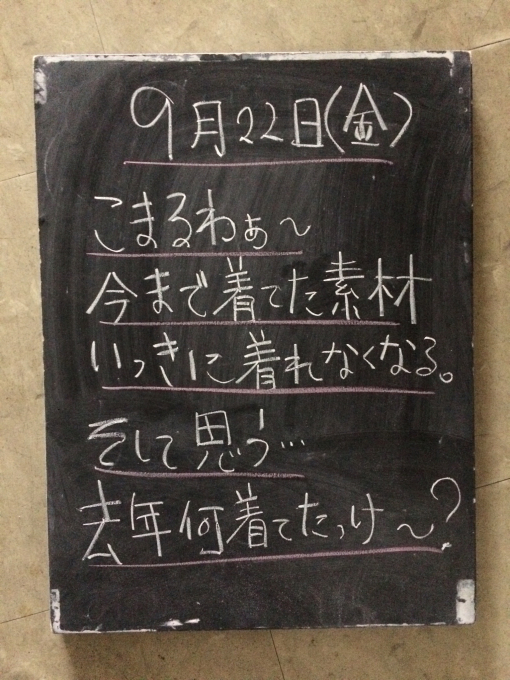 9月22日(金)
こまるわぁ〜
今まで着てた素材
いっきに着れなくなる。
そして思う…
去年何着てたっけ〜?